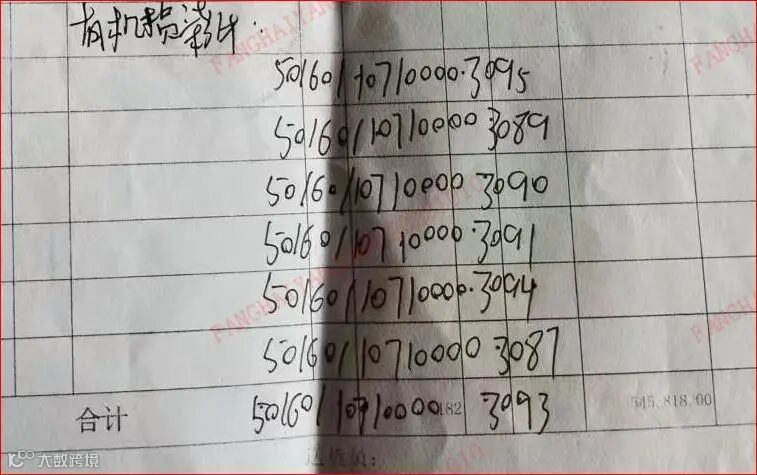 有机损渗计:
50160110710000.3095
50160110710000 3089
50160110710000 3090
50160110710000.3091
50160110710000.3094
50160110710000 3087
合计 50160110710000 182 3093 545,818.00
FANGHAIYAN
大数跨境